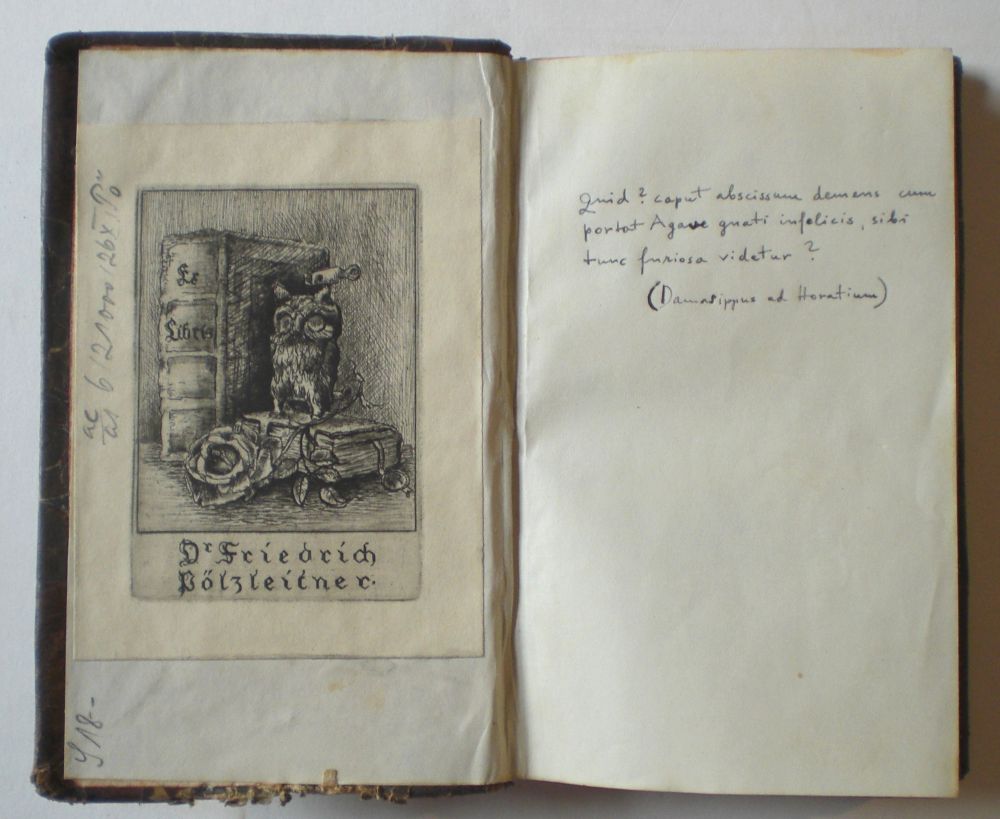 Ex
Libris
Dr Friedrich
Pölzleitner.
ac 6/21000/26XI
S 18-
Quid? caput abscissum demens cum
portat Agave gnati infelicis, sibi
tunc furiosa videtur?
(Damasippus ad Horatium)